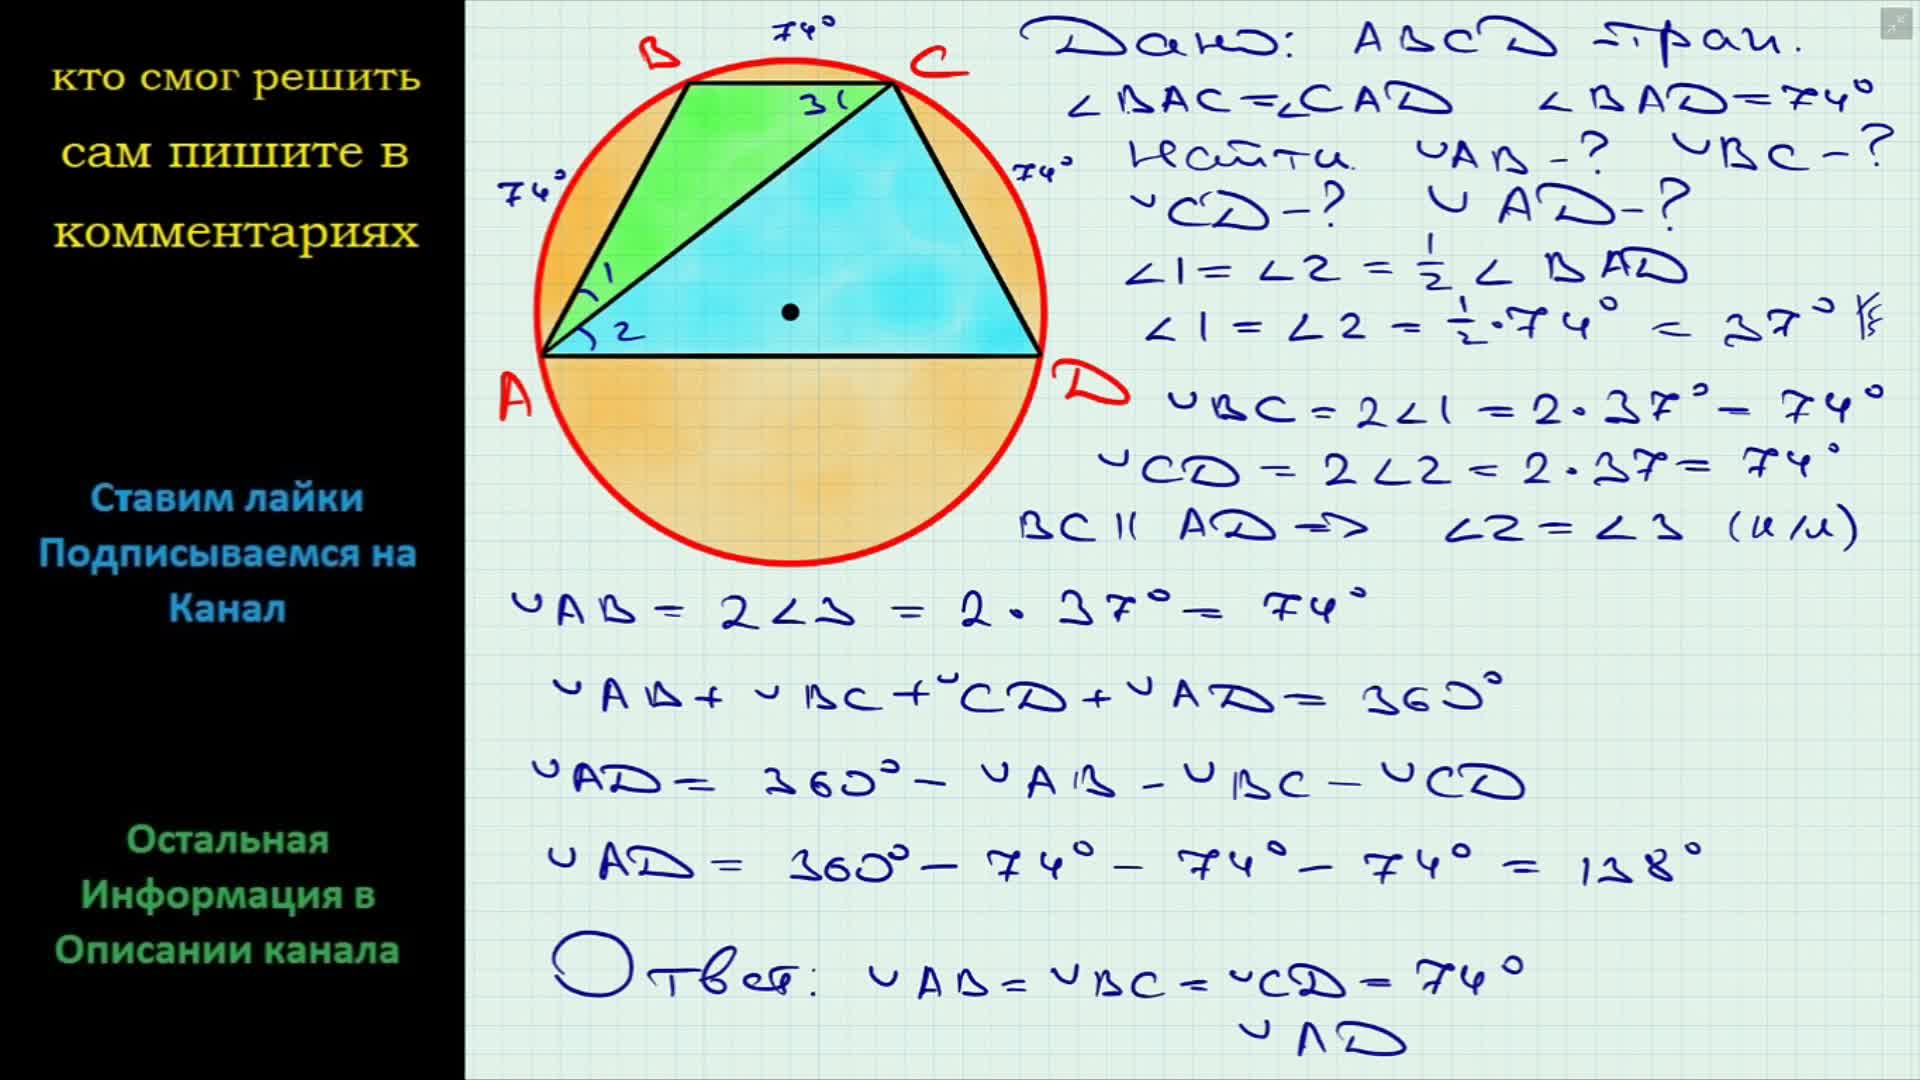 кто смог решить
сам пишите в
комментариях
Ставим лайки
Подписываемся на
Канал
Остальная
Информация в
Описании канала
74°
B
C
74°
74°
3
1
2
A
D
Дано: ABCD – трап.
∠BAC = ∠CAD ∠BAD = 74°
Найти ◡AB – ? ◡BC – ?
◡CD – ? ◡AD – ?
∠1 = ∠2 = 1/2 ∠BAD
∠1 = ∠2 = 1/2 · 74° = 37°
◡BC = 2∠1 = 2 · 37° = 74°
◡CD = 2∠2 = 2 · 37 = 74°
BC || AD => ∠2 = ∠3 (н/л)
◡AB = 2∠3 = 2 · 37° = 74°
◡AB + ◡BC + ◡CD + ◡AD = 360°
◡AD = 360° – ◡AB – ◡BC – ◡CD
◡AD = 360° – 74° – 74° – 74° = 138°
Ответ: ◡AB = ◡BC = ◡CD = 74°
◡AD